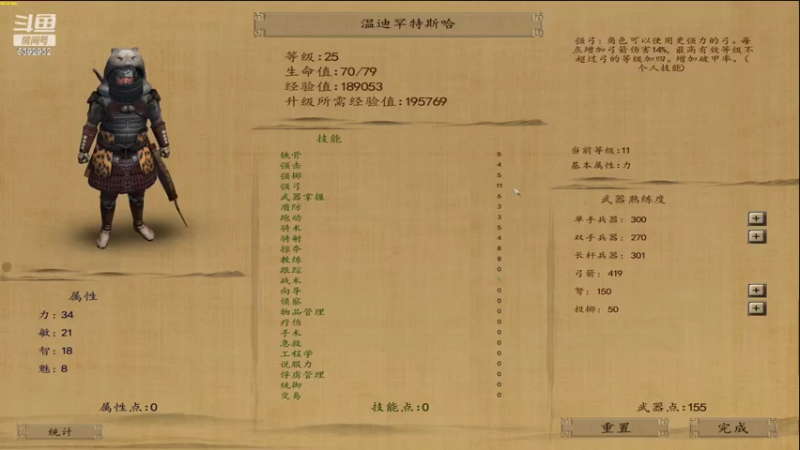 斗鱼
房间号
6392932
温迪罕特斯哈
等级:25
生命值:70/79
经验值:189053
升级所需经验值:195769
强弓:角色可以使用更强力的弓。每
点增加弓箭伤害14%,最高有效等级不
超过弓的等级加四。增加破甲率。(
个人技能)
当前等级:11
基本属性:力
技能
铁骨 5
强击 4
强掷 5
强弓 11
武器掌握 6
盾防 3
跑动 3
骑术 5
骑射 4
掠夺 8
教练 8
跟踪 0
战术
向导 0
侦察 0
物品管理 0
疗伤 0
手术 0
急救 0
工程学 0
说服力 0
俘虏管理 0
统御 0
交易 0
武器熟练度
单手兵器: 300 +
双手兵器: 270 +
长杆兵器: 301
弓箭: 419
弩: 150 +
投掷: 50 +
属性
力: 34
敏: 21
智: 18
魅: 8
属性点:0
技能点:0
武器点:155
统计
重置
完成